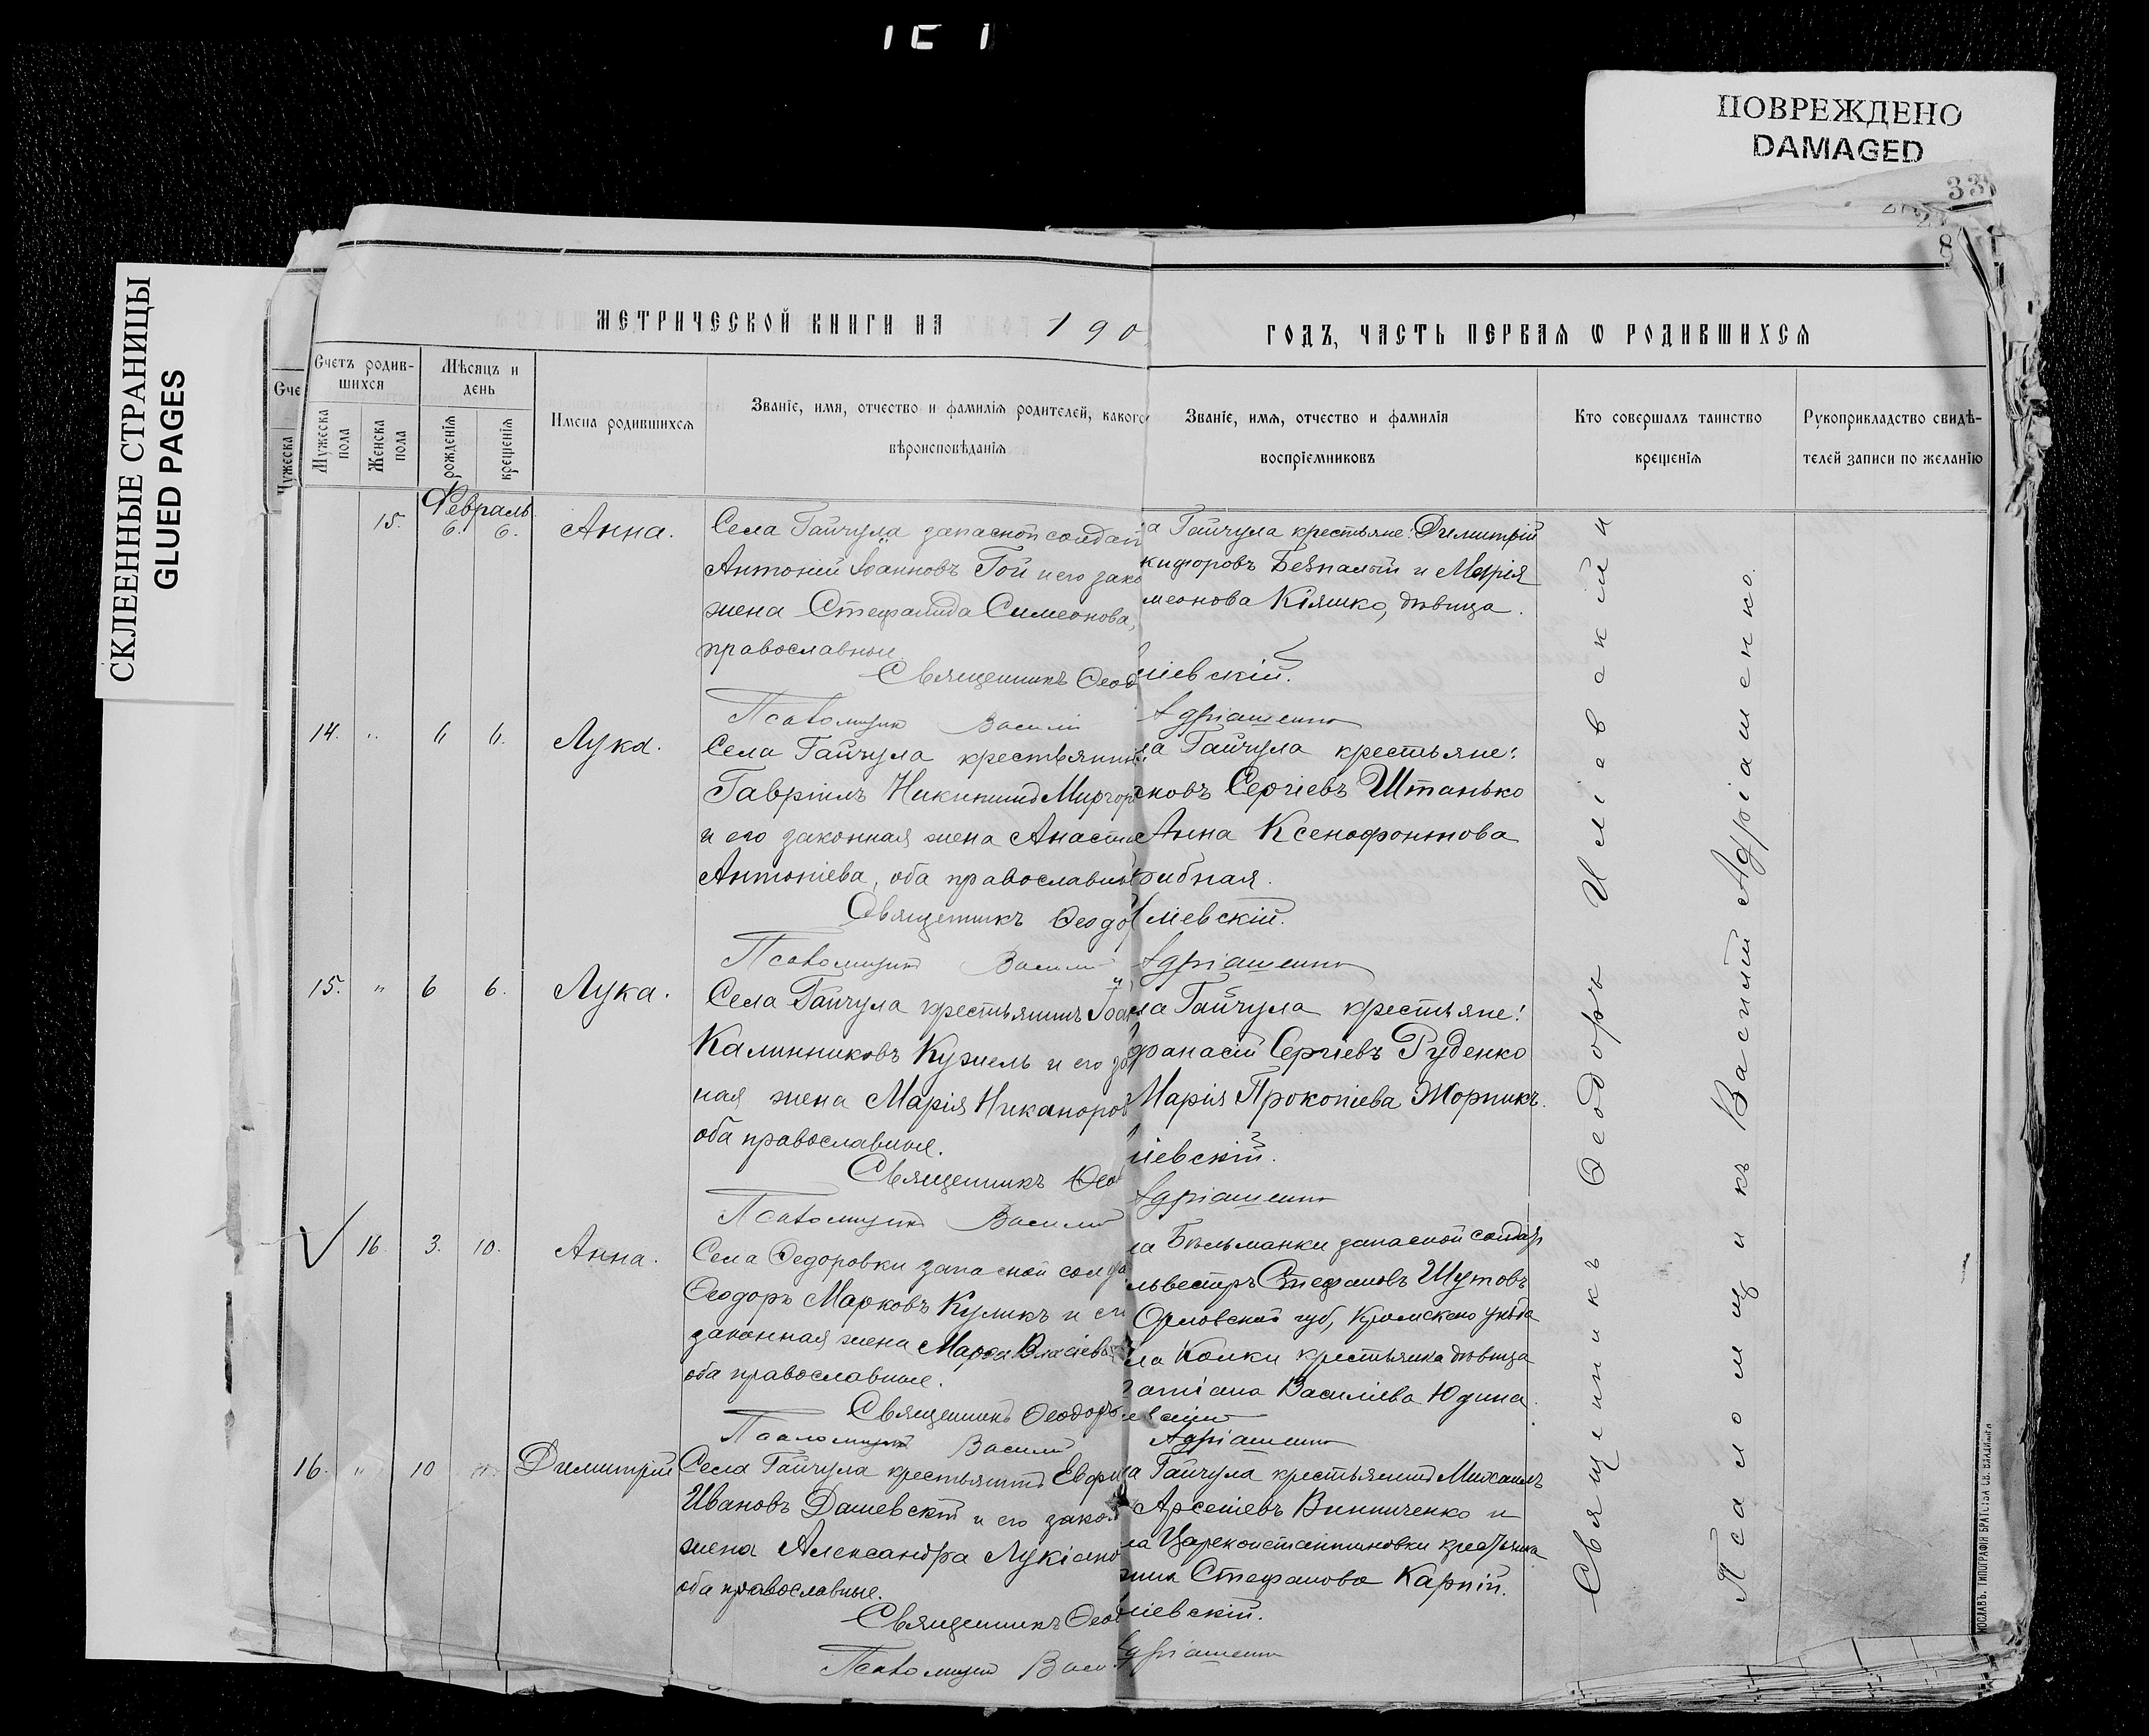 ПОВРЕЖДЕНО
DAMAGED
СКЛЕЕННЫЕ СТРАНИЦЫ
GLUED PAGES
33
8
МЕТРИЧЕСКОЙ КНИГИ НА 190
ГОДЪ, ЧАСТЬ ПЕРВАЯ Ѡ РОДИВШИХСЯ
Сче
Мужеска
Счетъ родив-
шихся
Мужеска
пола
Женска
пола
Мѣсяцъ и
день
рожденія
крещенія
Имена родившихся
Званіе, имя, отчество и фамилія родителей, какого
вѣроисповѣданія
Званіе, имя, отчество и фамилія
воспріемниковъ
Кто совершалъ таинство
крещенія
Рукоприкладство свидѣ-
телей записи по желанію
Февраль
15. 6. 6. Анна.
Села Гайчула запасной солдат
Антоній Іоанновъ Гой и его зако
жена Стефанида Симеонова,
православные.
Священникъ Ѳеод
Псаломщикъ Василій
а Гайчула крестьяне: Димитрій
кифоровъ Безпалый и Марія
меонова Кіяшко, дѣвица.
ліевскій.
Адріашенко
14. " 6 6. Лука.
Села Гайчула крестьянинъ
Гавріилъ Никитинъ Миргор
и его законная жена Анастас
Антоніева, оба православные
Священникъ Ѳеодо
Псаломщикъ Василій
ла Гайчула крестьяне:
ковъ Сергіевъ Штанько
Анна Ксенофонтова
рибная.
ліевскій.
Адріашенко
15. " 6 6. Лука.
Села Гайчула крестьянинъ Іоан
Калинниковъ Кужель и его за
ная жена Марія Никаноров
оба православные.
Священникъ Ѳео
Псаломщикъ Василій
ла Гайчула крестьяне:
фанасій Сергіевъ Руденко
Марія Прокопіева Жорникъ.
ліевскій.
Адріашенко
16. 3. 10. Анна.
Села Ѳедоровки запасной солда
Ѳеодоръ Марковъ Куликъ и его
законная жена Марѳа Власіева
оба православные.
Священникъ Ѳеодоръ
Псаломщикъ Василій
ла Бѣльманки запасной солдат
львестръ Стефановъ Шутовъ
Орловской губ., Кромскаго уѣзда
ла Колки крестьянка дѣвица
Татіана Василіева Юдина.
Адріашенко
16. " 10 Димитрій
Села Гайчула крестьянинъ Евфи
Ивановъ Дашевскій и его закон
жена Александра Лукіано
оба православные.
Священникъ Ѳеод
Псаломщикъ Васи
ла Гайчула крестьянинъ Михаилъ
Арсеніевъ Винниченко и
ла Цареконстантиновки крестьянка
Стефанова Карпій.
ліевскій.
Адріашенко
Священникъ Ѳеодоръ Иліевскій и
Псаломщикъ Василій Адріашенко.
ТИПОГРАФІЯ БРАТСТВА СВ. ВЛАДИМІРА